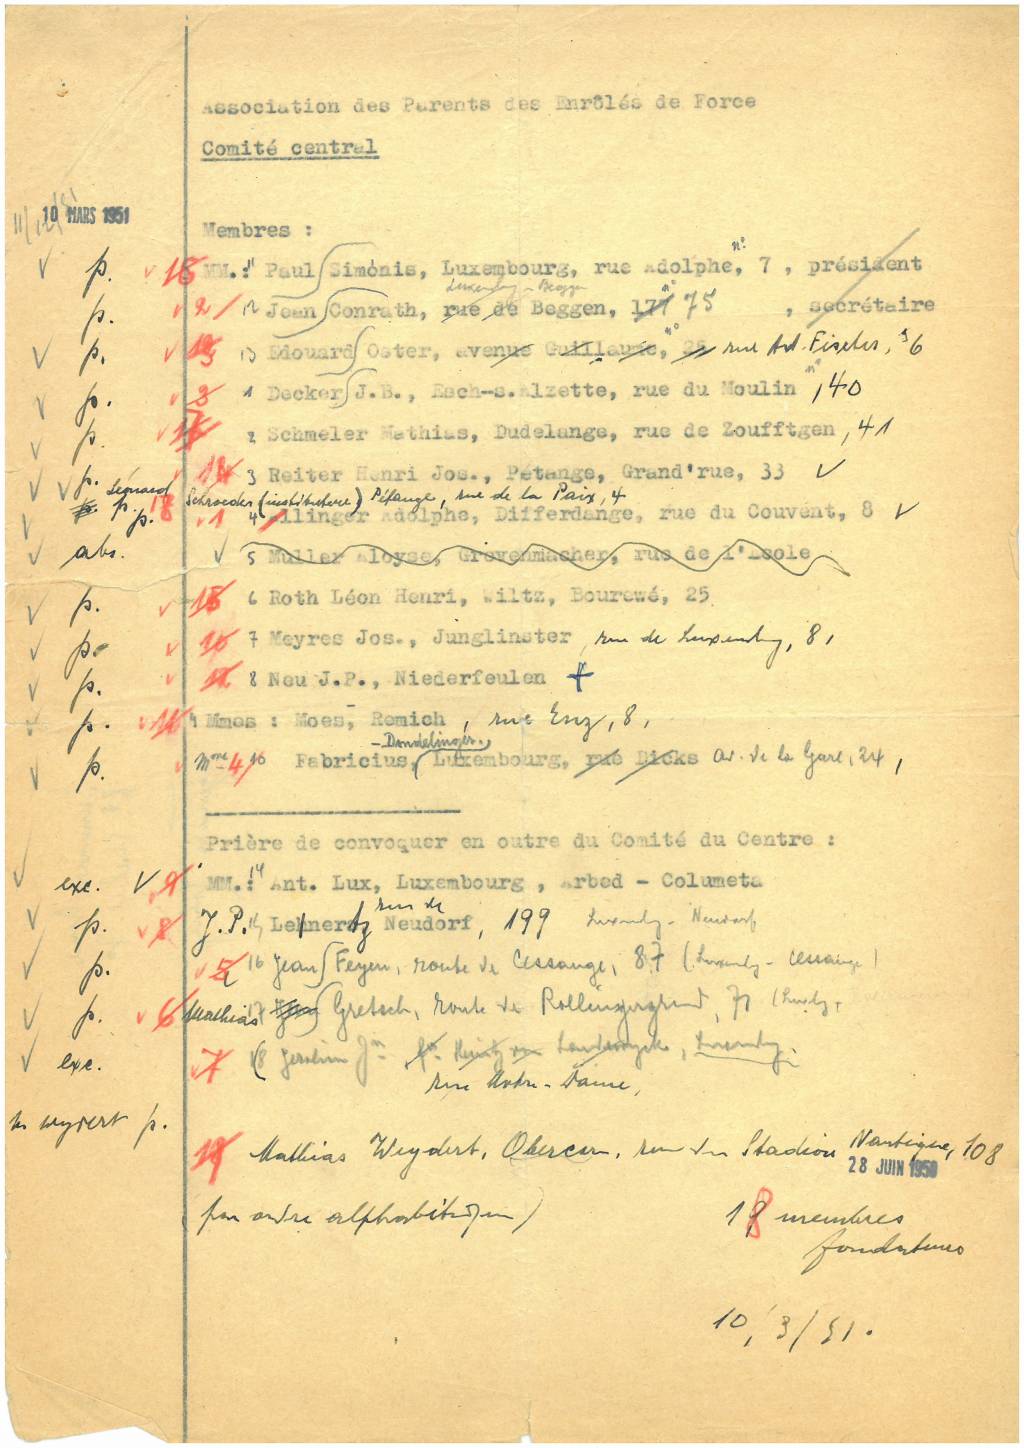 Association des Parents des Enrôlés de Force
Comité central
10 MARS 1951
Membres :
p. 18 MM.: 11 Paul Simonis, Luxembourg, rue Adolphe, n° 7 , président
Luxembg - Beggen
p. 2 12 Jean Conrath, rue de Beggen, 171 n° 75 , secrétaire
p. 13 Edouard Oster, avenue Guillaume, 25 rue Ad. Fischer, 36
p. 3 1 Decker J.B., Esch-s.Alzette, rue du Moulin n°, 40
p. 2 Schmeler Mathias, Dudelange, rue de Zoufftgen, 41
p. 14 3 Reiter Henri Jos., Pétange, Grand'rue, 33
p. 18 Léonard Schroeder (instituteur) Pétange, rue de la Paix, 4
p. 1 4 Allinger Adolphe, Differdange, rue du Couvent, 8
abs. 5 Muller Aloyse, Grevenmacher, rue de l'Ecole
p. 15 6 Roth Léon Henri, Wiltz, Bourewé, 25
p. 10 7 Meyres Jos., Junglinster, rue de Luxembg, 8,
p. 8 Neu J.P., Niederfeulen
p. 9 Mmes : Moes, Remich, rue Enz, 8,
- Dondelinger.
p. Mme 4 10 Fabricius, Luxembourg, rue Dicks Av. de la Gare, 24,
Prière de convoquer en outre du Comité du Centre :
exc. 9 MM.: 14 Ant. Lux, Luxembourg , Arbed - Columeta
p. 8 J.P. Lehnertz rue de Neudorf, 199 Luxembg - Neudorf
p. 5 16 Jean Feyen, route de Cessange, 87 (Luxembg - Cessange)
p. 6 Mathias 17 Jean Gretsch, route de Rollingergrund, 71 (Luxbg,
exc. 7 18 Jérolim Jn Landewyck, Luxembg.
rue Notre-Dame,
Weydert p.
19 Mathias Weydert, Obercorn, rue du Stadion Nautique, 108
28 JUIN 1950
(par ordre alphabétique)
18 membres
fondateurs
10/3/51.